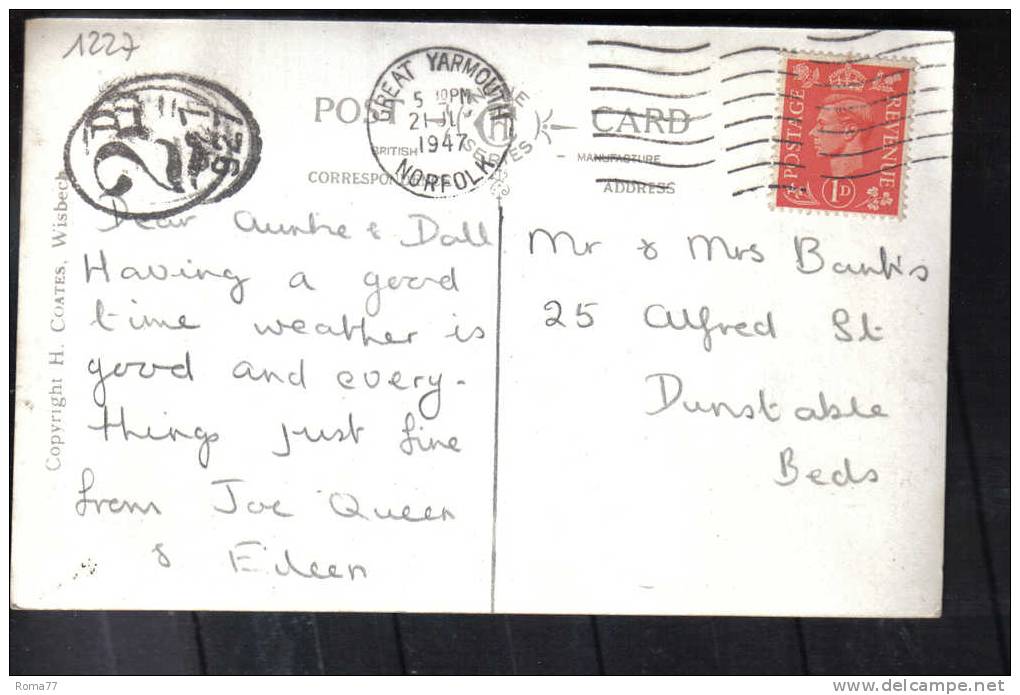 1227
POST CARD
GREAT YARMOUTH
NORFOLK
21 JL
1947
BRITISH
MANUFACTURE
SERIES
ADDRESS
POSTAGE
REVENUE
1D
Copyright H. COATES, Wisbech
Dear Auntie & Doll
Having a good
time weather is
good and every-
things just fine
from Joe Queen
& Eileen
Mr & Mrs Banks
25 Alfred St
Dunstable
Beds
Roma77
www.delcampe.net